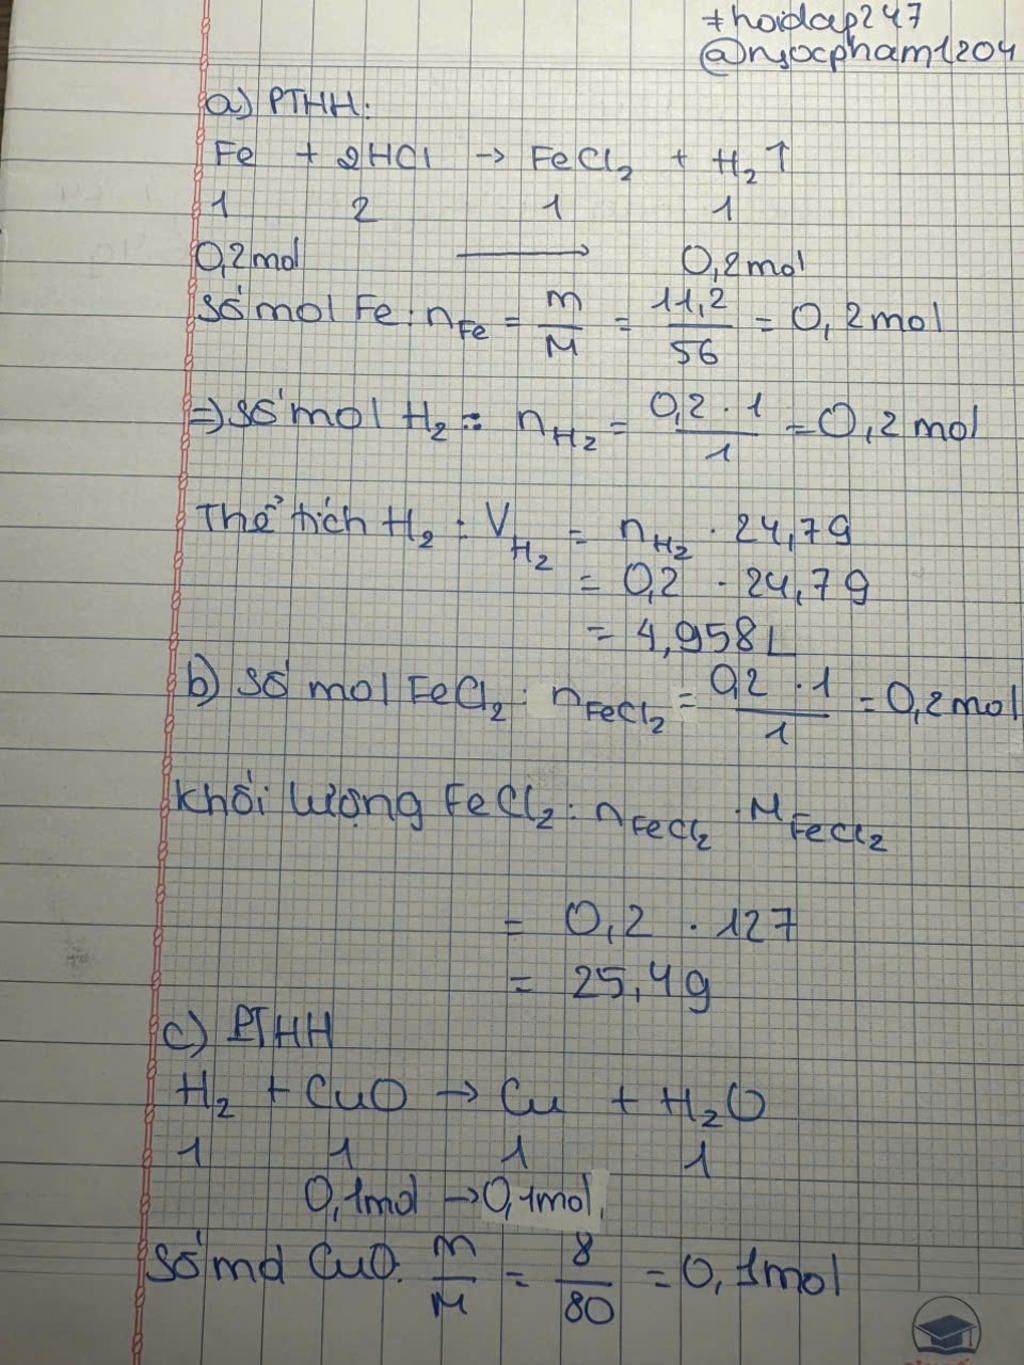 #hoidap247
@ngocpham1204
a) PTHH:
Fe + 2HCl → FeCl₂ + H₂↑
1 2 1 1
0,2mol → 0,2mol
Số mol Fe: n_Fe = m/M = 11,2/56 = 0,2mol
=> Số mol H₂: n_H₂ = 0,2 . 1/1 = 0,2mol
Thể tích H₂: V_H₂ = n_H₂ . 24,79
= 0,2 . 24,79
= 4,958L
b) Số mol FeCl₂: n_FeCl₂ = 0,2 . 1/1 = 0,2mol
Khối lượng FeCl₂: n_FeCl₂ . M_FeCl₂
= 0,2 . 127
= 25,4g
c) PTHH
H₂ + CuO → Cu + H₂O
1 1 1 1
0,1mol → 0,1mol.
Số mol CuO: m/M = 8/80 = 0,1mol